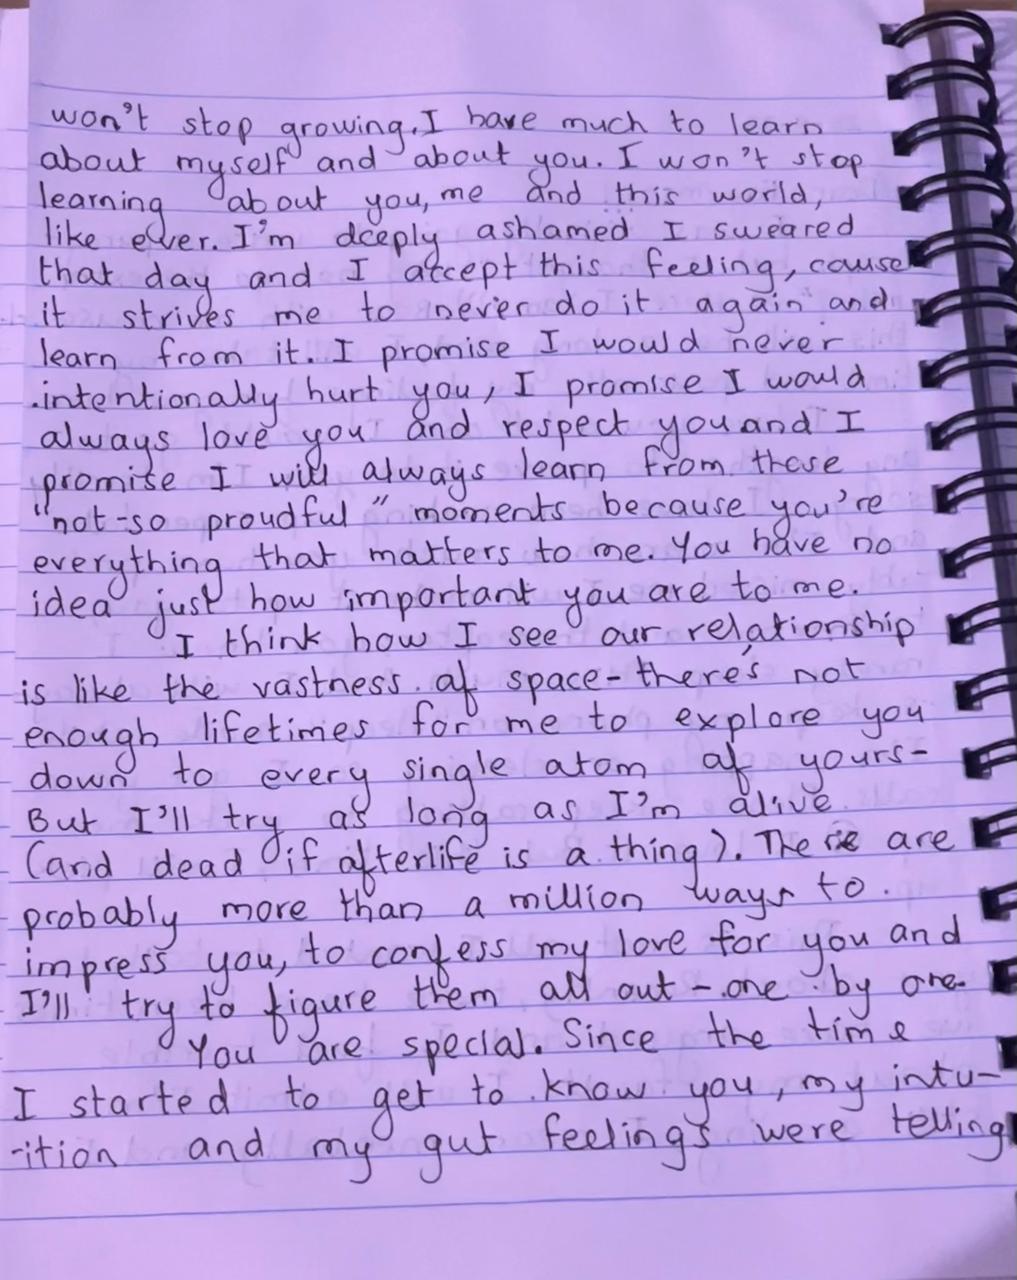 won't stop growing. I have much to learn
about myself and about you. I won't stop
learning about you, me and this world,
like ever. I'm deeply ashamed I sweared
that day and I accept this feeling, cause
it strives me to never do it again and
learn from it. I promise I would never
intentionally hurt you, I promise I would
always love you and respect you and I
promise I will always learn from these
"not-so proudful" moments because you're
everything that matters to me. You have no
idea just how important you are to me.
I think how I see our relationship
is like the vastness of space - there's not
enough lifetimes for me to explore you
down to every single atom of yours-
But I'll try as long as I'm alive
(and dead if afterlife is a thing). There are
probably more than a million ways to
impress you, to confess my love for you and
I'll try to figure them all out - one by one.
You are special. Since the time
I started to get to know you, my intu-
-ition and my gut feelings were telling